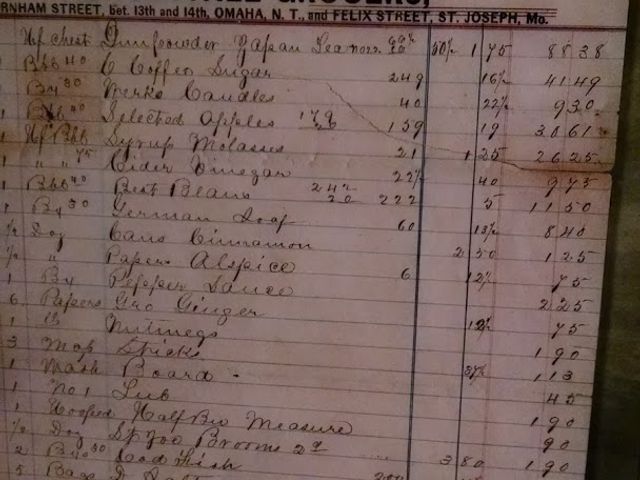 GROCERS,
RNHAM STREET, bet. 13th and 14th, OMAHA, N. T., and FELIX STREET, ST. JOSEPH, Mo.
Hf Chest Gunpowder Japan Tea 50½ 1 75 88 38
1 Bbl 40 C Coffee Sugar 249 16⅔ 41 49
1 Bx 30 Candles 40 22½ 9 30
1 Bbl 40 Selected Apples 179 20 159 19 30 61
1 Hf Bbl Syrup Molasses 21 1 25 26 25
1 " " 75 Cider Vinegar 22½ 40 9 75
1 Bbl 40 Best Beans 242 20 222 5 11 50
1 Bx 30 German Soap 60 13½ 8 40
½ Doz Cans Cinnamon 2 50 1 25
½ " Papers Alspice 6 12½ 75
1 Bx Pepper Sauce 2 25
6 Papers Gro Ginger 12½ 75
1 lb Nutmegs 1 90
3 Mop Sticks 37½ 1 13
1 Wash Board 45
1 No 1 Tub 1 90
1 Hooped Half Bu Measure 90
½ Doz Brooms 3 80 1 90
2 Bx 50 Cod Fish 200
5 Bags